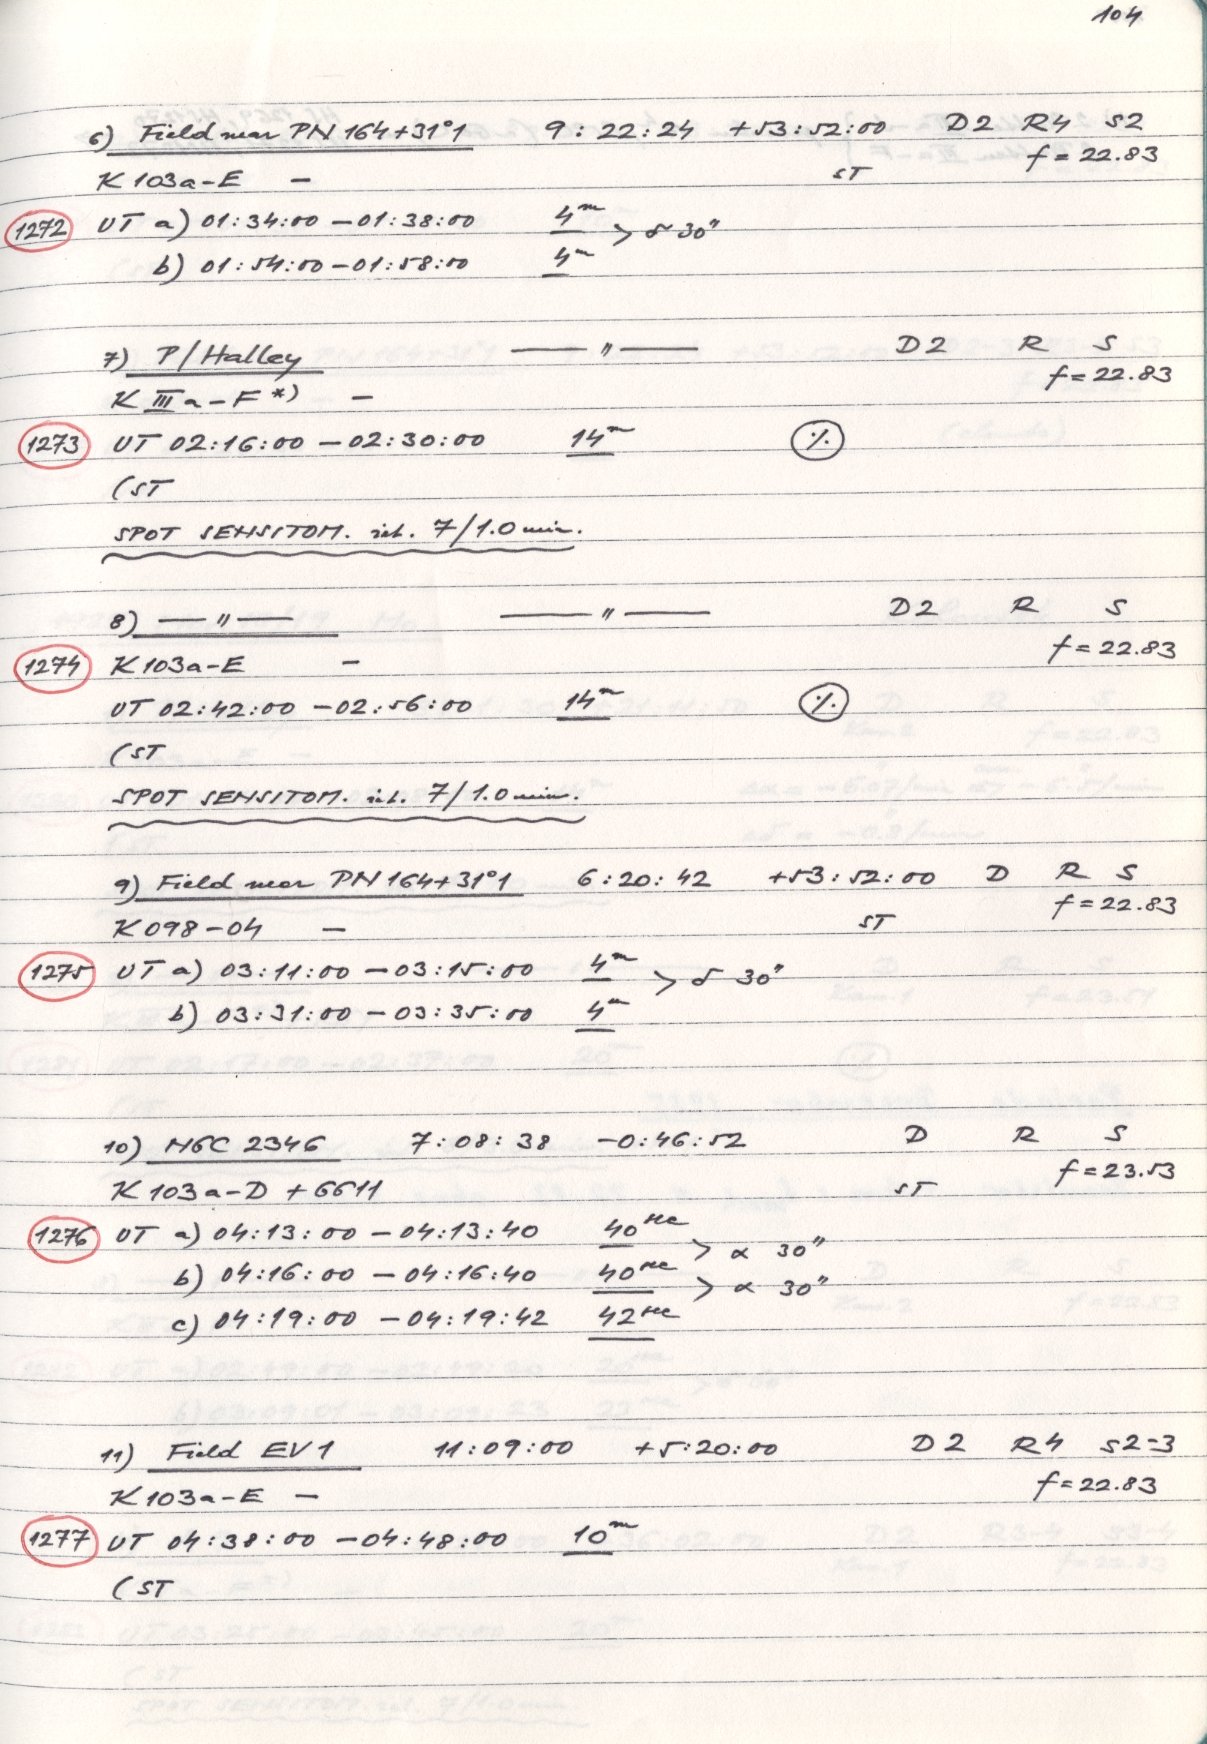 104
6) Field near PN 164+31°1 9:22:24 +53:52:00 D2 R4 S2
K 103a-E — ST f=22.83
1272 UT a) 01:34:00 – 01:38:00 4m > δ 30"
b) 01:54:00 – 01:58:00 4m
7) P/Halley — " — D2 R S
K IIIa-F *) — f=22.83
1273 UT 02:16:00 – 02:30:00 14m %
(ST
SPOT SENSITOM. 7/1.0 min.
8) — " — — " — D2 R S
1274 K 103a-E — f=22.83
UT 02:42:00 – 02:56:00 14m %
(ST
SPOT SENSITOM. 7/1.0 min.
9) Field near PN 164+31°1 6:20:42 +53:52:00 D R S
K 098-04 — ST f=22.83
1275 UT a) 03:11:00 – 03:15:00 4m > δ 30"
b) 03:31:00 – 03:35:00 4m
10) NGC 2346 7:08:38 -0:46:52 D R S
K 103a-D + 6611 ST f=23.53
1276 UT a) 04:13:00 – 04:13:40 40sec > α 30"
b) 04:16:00 – 04:16:40 40sec > α 30"
c) 04:19:00 – 04:19:42 42sec
11) Field EV1 11:09:00 +5:20:00 D2 R4 S2-3
K 103a-E — f=22.83
1277 UT 04:38:00 – 04:48:00 10m
(ST